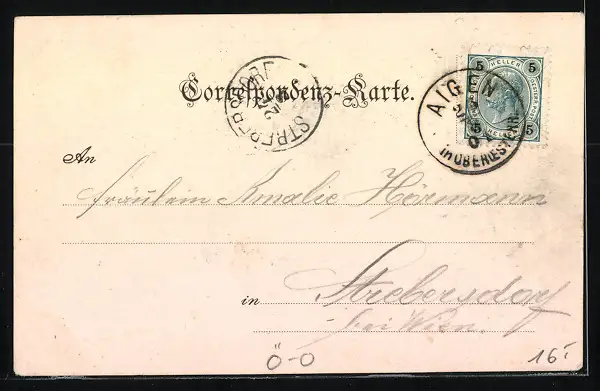 Correspondenz-Karte.
STREBERSDORF
AIGEN
in OBEROESTERR.
5 HELLER 5
5 HELLER 5
An
Fräulein Amalie Hörmann
in Strebersdorf
bei Wien.
Ö-O
16,-